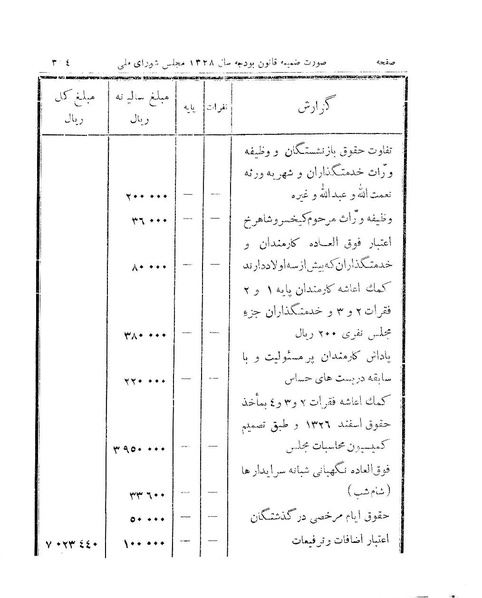 صفحه صورت ضمیمه قانون بودجه سال ۱۳۲۸ مجلس شورای ملی ۳۰۴
گزارش نفرات پایه مبلغ سالیانه ریال مبلغ کل ریال
تفاوت حقوق بازنشستگان و وظیفه
ورّاث خدمتگذاران و شهریه ورثه
نعمت الله و عبدالله و غیره — — ۲۰۰ ۰۰۰
وظیفه ورّاث مرحوم کیخسرو شاهرخ — — ۳۶ ۰۰۰
اعتبار فوق العاده کارمندان و
خدمتگذاران که بیش از سه اولاد دارند — — ۸۰ ۰۰۰
کمك اعاشه کارمندان پایه ۱ و ۲
فقرات ۲ و ۳ و خدمتگذاران جزء
مجلس نفری ۲۰۰ ریال — — ۳۸۰ ۰۰۰
پاداش کارمندان پر مسئولیت و با
سابقه در پست های حساس — — ۲۲۰ ۰۰۰
کمك اعاشه فقرات ۲ و ۳ و ٤ بمأخذ
حقوق اسفند ۱۳۲۶ و طبق تصمیم
کمیسیون محاسبات مجلس — — ۳ ۹۵۰ ۰۰۰
فوق العاده نگهبانی شبانه سرایدار ها
(شام شب) — — ۳۳ ۶۰۰
حقوق ایام مرخصی درگذشتگان — — ۵۰ ۰۰۰
اعتبار اضافات و ترفیعات — — ۱۰۰ ۰۰۰ ۷ ۰۲۳ ٤٤۰